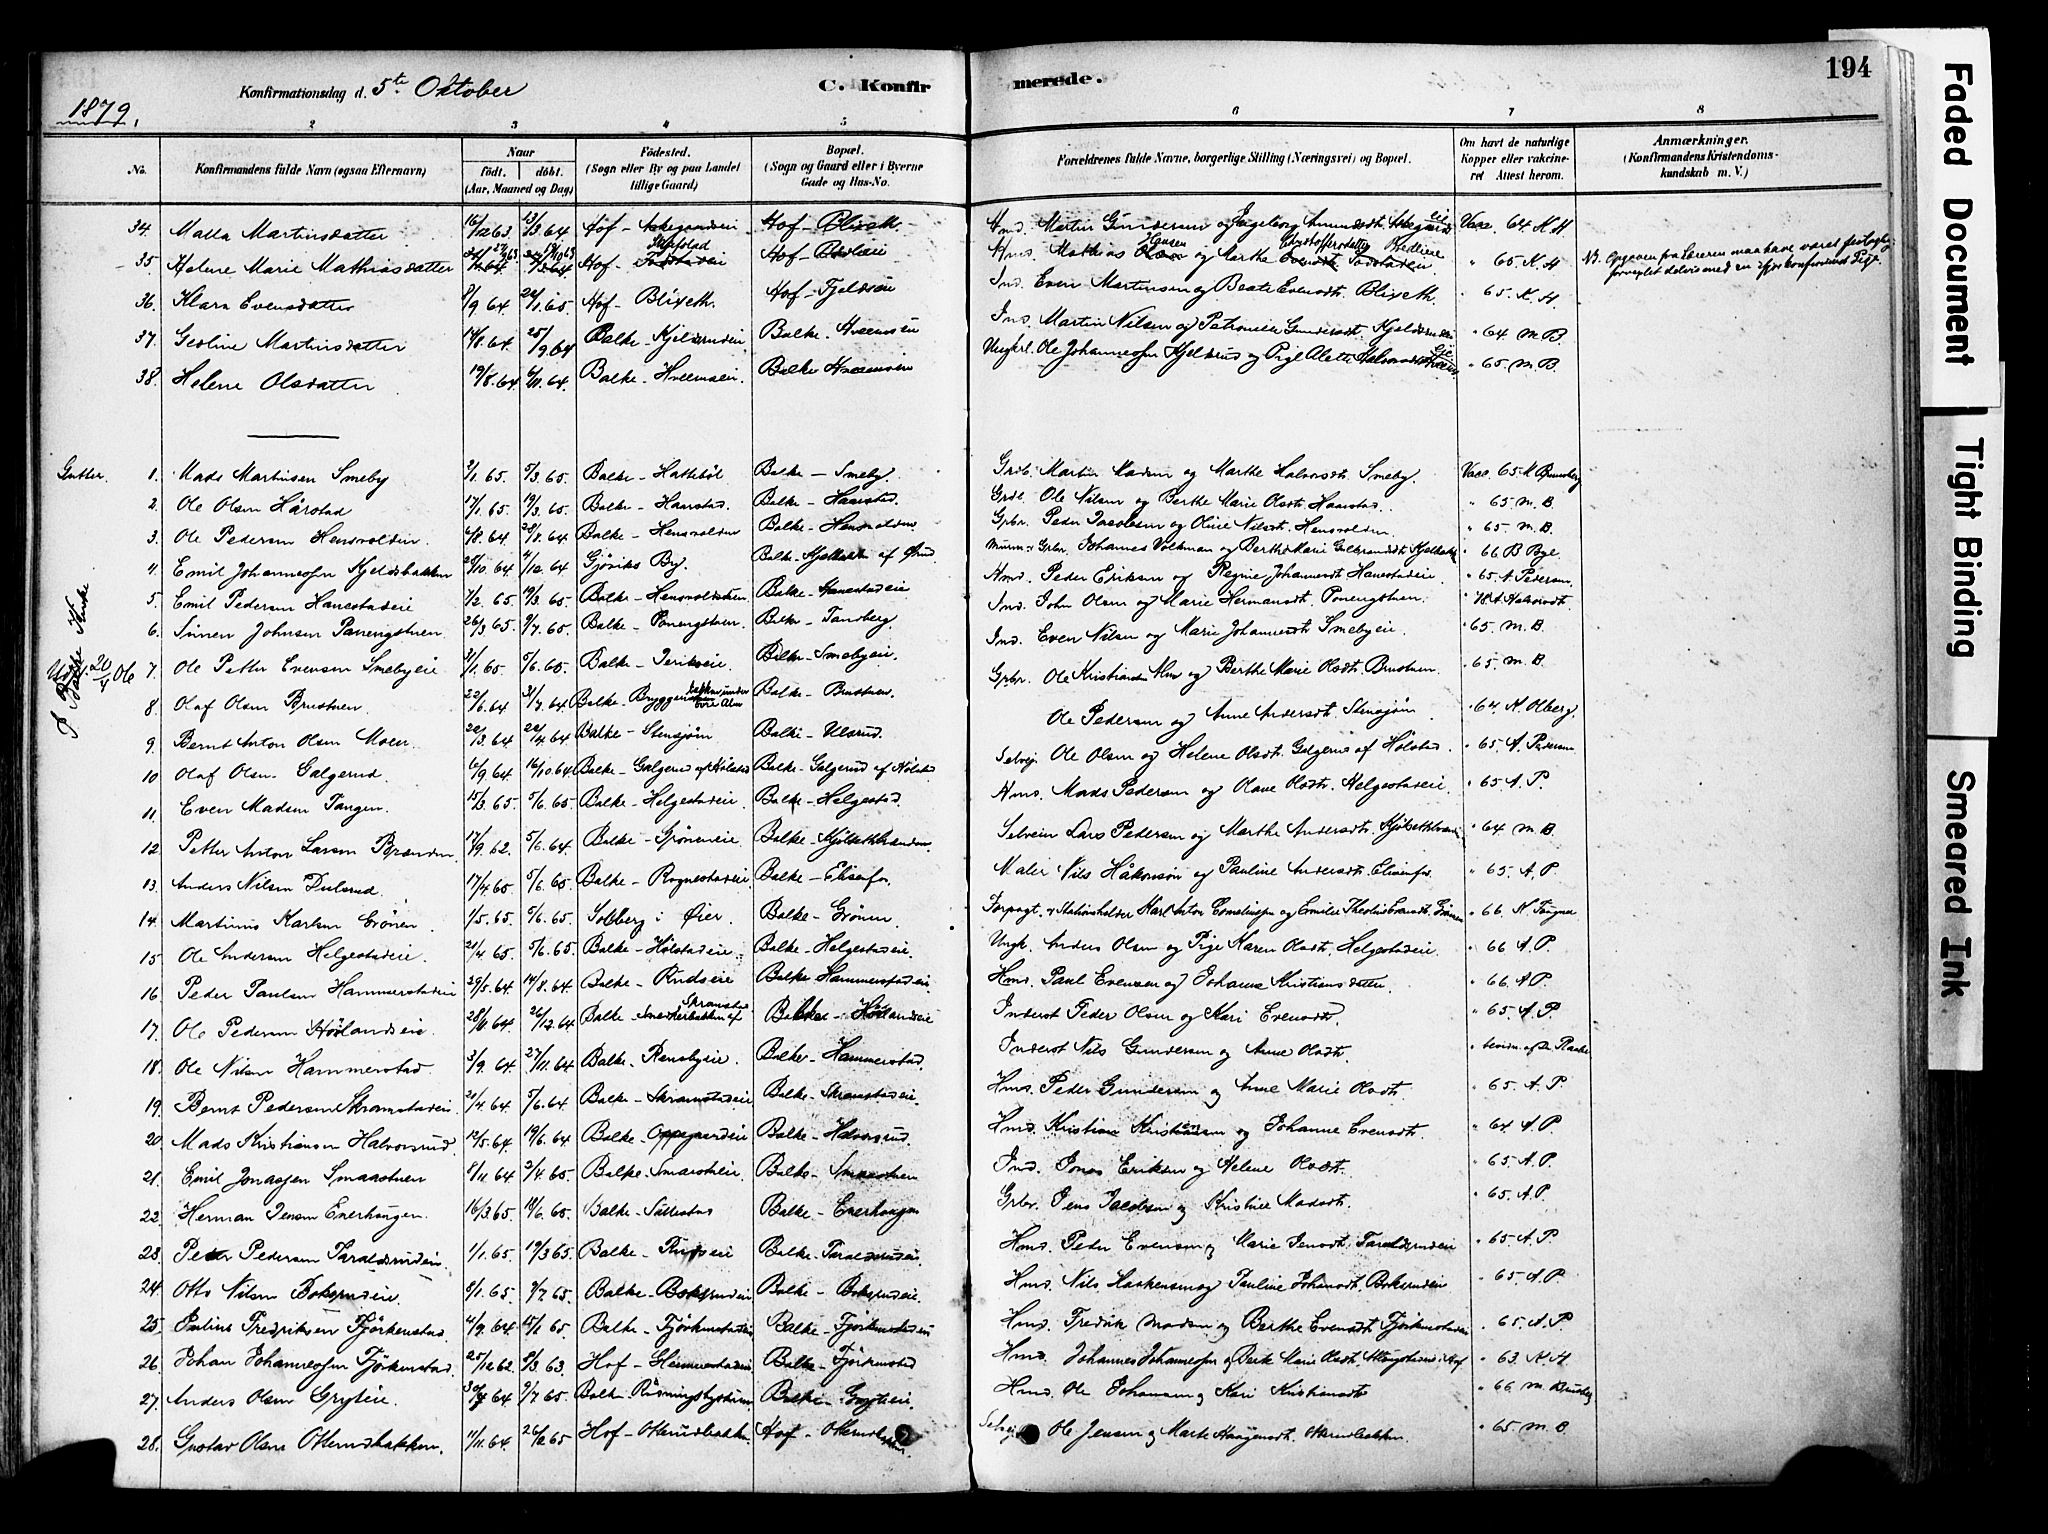 Konfirmationsdag d. 5te Oktober C. Konfir merede. 194
1879.
2 3 4 5 6 7 8
No. Konfirmandens fulde Navn (ogsaa Efternavn) Naar født. døbt. (Aar, Maaned og Dag) Fødested. (Sogn eller By og paa Landet tillige Gaard) Bopæl. (Sogn og Gaard eller i Byerne Gade og Hus-No. Forældrenes fulde Navne, borgerlige Stilling (Næringsvei) og Bopæl. Om havt de naturlige Kopper eller vakcineret Attest herom. Anmærkninger. (Konfirmandens Kristendomskundskab m. V.)
34. Malla Martinsdatter 16/12 63 13/3 64 Hof - Hof - Blixeth. Hmd. Martin Gundersen og Ingeborg Amundsdt. Vacc. 64 K H
35. Helene Marie Mathiasdatter Hof - Hof - Mathias og Marthe " 65. K. H
36. Klara Evensdatter 8/9 64 Hof - Blixeth. Hof - Fjeldseie Ind. Even Martinsen og Beate Evensdt. Blixeth. " 65. K. H.
37. Geoline Martinsdatter 14/8 64. 25/9 64 Balke - Kjeldsrudeie Balke. Hveemseie Ins. Martin Nilsen og Petronelle Gundersdt. Kjeldsrudeie " 64 M. B.
38. Helene Olsdatter 19/8. 64 6/11. 64. Balke - Hveemseie. Balke Hveemseie Ungkrl. Ole Johannessen Kjeldsrud og Pige Alette Halvorsdt. " 65. M. B.
Gutter. 1. Mads Martinsen Smeby 2/1. 65. 5/3. 65. Balke - Hattebøl Balke - Smeby. Grdb. Martin Madsen og Marthe Halvorsdt. Smeby. Vacc. 65. M
2. Ole Olsen Hårstad 17/1. 65. 19/3. 65. Balke - Haarstad. Balke - Haarstad. Grdb. Ole Nilsen og Berthe Marie Olsdt. Haarstad. " 65. M. B.
3. Ole Pedersen Hensvolden. 4/8. 64. 28/8. 64 Balke - Hensvolden Balke - Hensvolden. Gpbr. Peder Jacobsen og Oline Nilsdt. Hensvolden " 65. M. B.
4. Emil Johannessen Kjeldsbakken 4/12. 64 Gjøviks By. Balke - af Grud Murm. & Gpbr. Johannes Volkman og Berthe Marie Gulbrandsdt. " 66 B Bye.
5. Emil Pedersen Hanestadeie 7/2. 65 19/3. 65 Balke - Hensvolden Balke - Hanestadeie Hmd. Peder Eriksen og Regine Johannesdt. Hanestadeie. " 65. A. Pedersen.
6. Simen Johnsen Ponengstuen. 26/3 65. 9/7. 65. Balke - Ponengstuen. Balke - Tandberg. Ind. John Olsen og Marie Hermansdt. Ponengstuen. "
J Balke Kirke 20/4 Ole 7. Ole Petter Evensen Smebyeie 5/6. 65 Balke - Balke - Smebyeie. Ind. Even Nilsen og Marie Johannesdt. Smebyeie. " 65. M. B.
8. Olaf Olsen Brustuen. 22/6. 64 31/7. 64. Balke - Balke - Brustuen. Gpbr. Ole Kristiansen Alm og Berthe Marie Olsdt. Brustuen " 65. M. B.
9. Bernt Anton Olsen Moen. 20/3. 64 Balke - Stensjøen Balke - Ulsrud. Ole Pedersen og Anne Andersdt. Stensjøen. " 64. N. Olberg.
10. Olaf Olsen Galgerud. 6/9. 64. 16/10. 64. Balke - Galgerud af Hølstad Balke - Galgerud af Hølstad Selvej. Ole Olsen og Helene Olsdt. Galgerud af Hølstad. " 65. A. Pedersen
11. Even Madsen Tangen. 15/3. 65. 5/6. 65 Balke - Helgestadeie. Balke - Helgestad. Hmd. Mads Pedersen og Olave Olsdt. Helgestadeie. " 65. A. P.
12. Petter Anton Larsen Brænden. 17/9. 62. 5/6. 64. Balke - Grøneneie. Balke - Kjølsethbrænden. Selveier Lars Pedersen og Marthe Andersdt. " 64. M. B.
13. Anders Nilsen Dulsrud. 17/4. 65. 5/6. 65. Balke - Rognstadeie Balke - Elisenfor. Maler Nils Håkonsøn og Pauline Andersdt. Elisenfor. " 65. A. P.
14. Martinus Karlsen Grönen. 1/5. 65. 5/6. 65. Solberg i Øier. Balke - Grønen Forpagt. & Stationsholder Karl Anton Corneliussen og Emilie Evensdt. Grønen " 66. N.
15. Ole Andersen Helgestadeie. 21/4 65. 5/6. 65. Balke - Hølstadeie Balke - Helgestadeie. Ungk. Anders Olsen og Pige Karen Olsdt. Helgestadeie " 66 A. P.
16. Peder Paulsen Hammerstadeie 29/5. 64 14/8. 64. Balke - Rudseie Balke Hammerstadeie. Hmd. Paul Evensen og Johanne Kristiansdatter. " 66. A P.
17. Ole Pedersen Høilandseie. 28/11. 64. 26/12. 64 Balke - Snekkerbakken af Skramstad Balke - Høilandseie Inderst Peder Olsen og Kari Evensdt. " 65. A. P.
18. Ole Nilsen Hammerstad. 3/9. 64. 27/11. 64 Balke - Rensbyeie. Balke - Hammerstad. Inderst Nils Gundersen og Anne Olsdt. "
19. Bernt Pedersen Skramstadeie. 21/4. 64. 5/6. 64. Balke - Skramstadeie Balke - Skramstadeie. Hmd. Peder Gundersen og Anne Marie Olsdt. " 65. A. P.
20. Mads Kristiansen Halvorsrud. 12/5. 64. 19/6. 64 Balke - Oppegaardeie Balke - Halvorsrud. Hmd. Kristian Kristiansen og Johanne Evensdt. " 64 A. P.
21. Emil Jonassen Smaastuen 8/11. 64 2/4. 65. Balke - Smaastueie. Balke - Smaastuen Ind. Jonas Eriksen og Helene Olsdt. " 65. A. P.
22. Herman Jensen Enerhaugen. 16/3. 65. 18/6. 65. Balke - Sullestad Balke - Enerhaugen Grbr. Jens Jacobsen og Kristine Madsdt. " 65. A. P.
23. Peder Pedersen Taraldsrudeie. 1/1. 65. 19/3 65. Balke - Rudseie Balke - Taraldsrudeie. Hmd. Peder Evensen og Marie Jensdt. Taraldsrudeie " 65. A. P
24. Otto Nilsen Boksrudeie. 8/1. 65. 9/7. 65. Balke - Boksrudeie Balke - Boksrudeie. Hmd. Nils Haakensen og Pauline Johansdt. Boksrudeie " 65. A. P.
25. Paulius Fredriksen Fjørkenstad. 4/9. 64. 15/1. 65. Balke - Fjørkenstadeie Balke - Fjørkenstadeie Hmd. Fredrik Madsen og Berthe Evensdt. Fjørkenstadeie " 65. A. P.
26. Johan Johannessen Fjørkenstad. 25/12 62. 8/3. 63. Hof - Balke - Fjørkenstad Hmd. Johannes Johannessen og Berte Marie Olsdt. i Hof " 63. K. H.
27. Anders Olsen Gryteie. 9/7. 65. Balke - Balke - Gryteie. Hmd. Ole Johansen og Kari Kristiansdt. " 66. M.
28. Gustav Olsen Otterudbakken. 11/11. 64. 26/12 65 Hof - Otterudbakken Hof - Otterudbakken Selvej. Ole Jensen og Marte Haagensdt. Otterudbakken. " 65. M. B.
Faded Document
Tight Binding
Smeared Ink